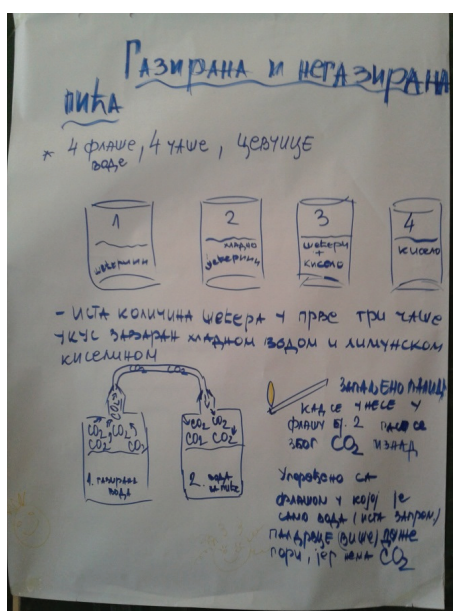 Газирана и негазирана
пића
* 4 флаше, 4 чаше, цевчице
воде
1
2
3
4
шећерни
хладно
шећерни
шећерн
+
кисело
кисело
- Иста количина шећера у прве три чаше
укус заваран хладном водом и лимунском
киселином
CO2 CO2
CO2
CO2 CO2
CO2 CO2
CO2 CO2
CO2 CO2
1. газирана
вода
2. вода
запаљено
кад се унесе у
флашу бр. 2 гаси се
због CO2 изнад
Упоређено са
флашом у којој је
само вода (иста запрем)
палидрвце (више) дуже
гори, јер нема CO2